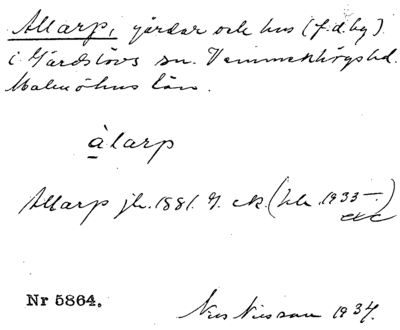 Allarp, gårdar och hus (f.d. by)
i Gärdslövs sn. Vemmenhögs hd.
Malmöhus län.
àlarp
Allarp jb. 1881. 9. ek. (bbr. 1933 —)
Nr 5864.
Nils Nilsson 1934.